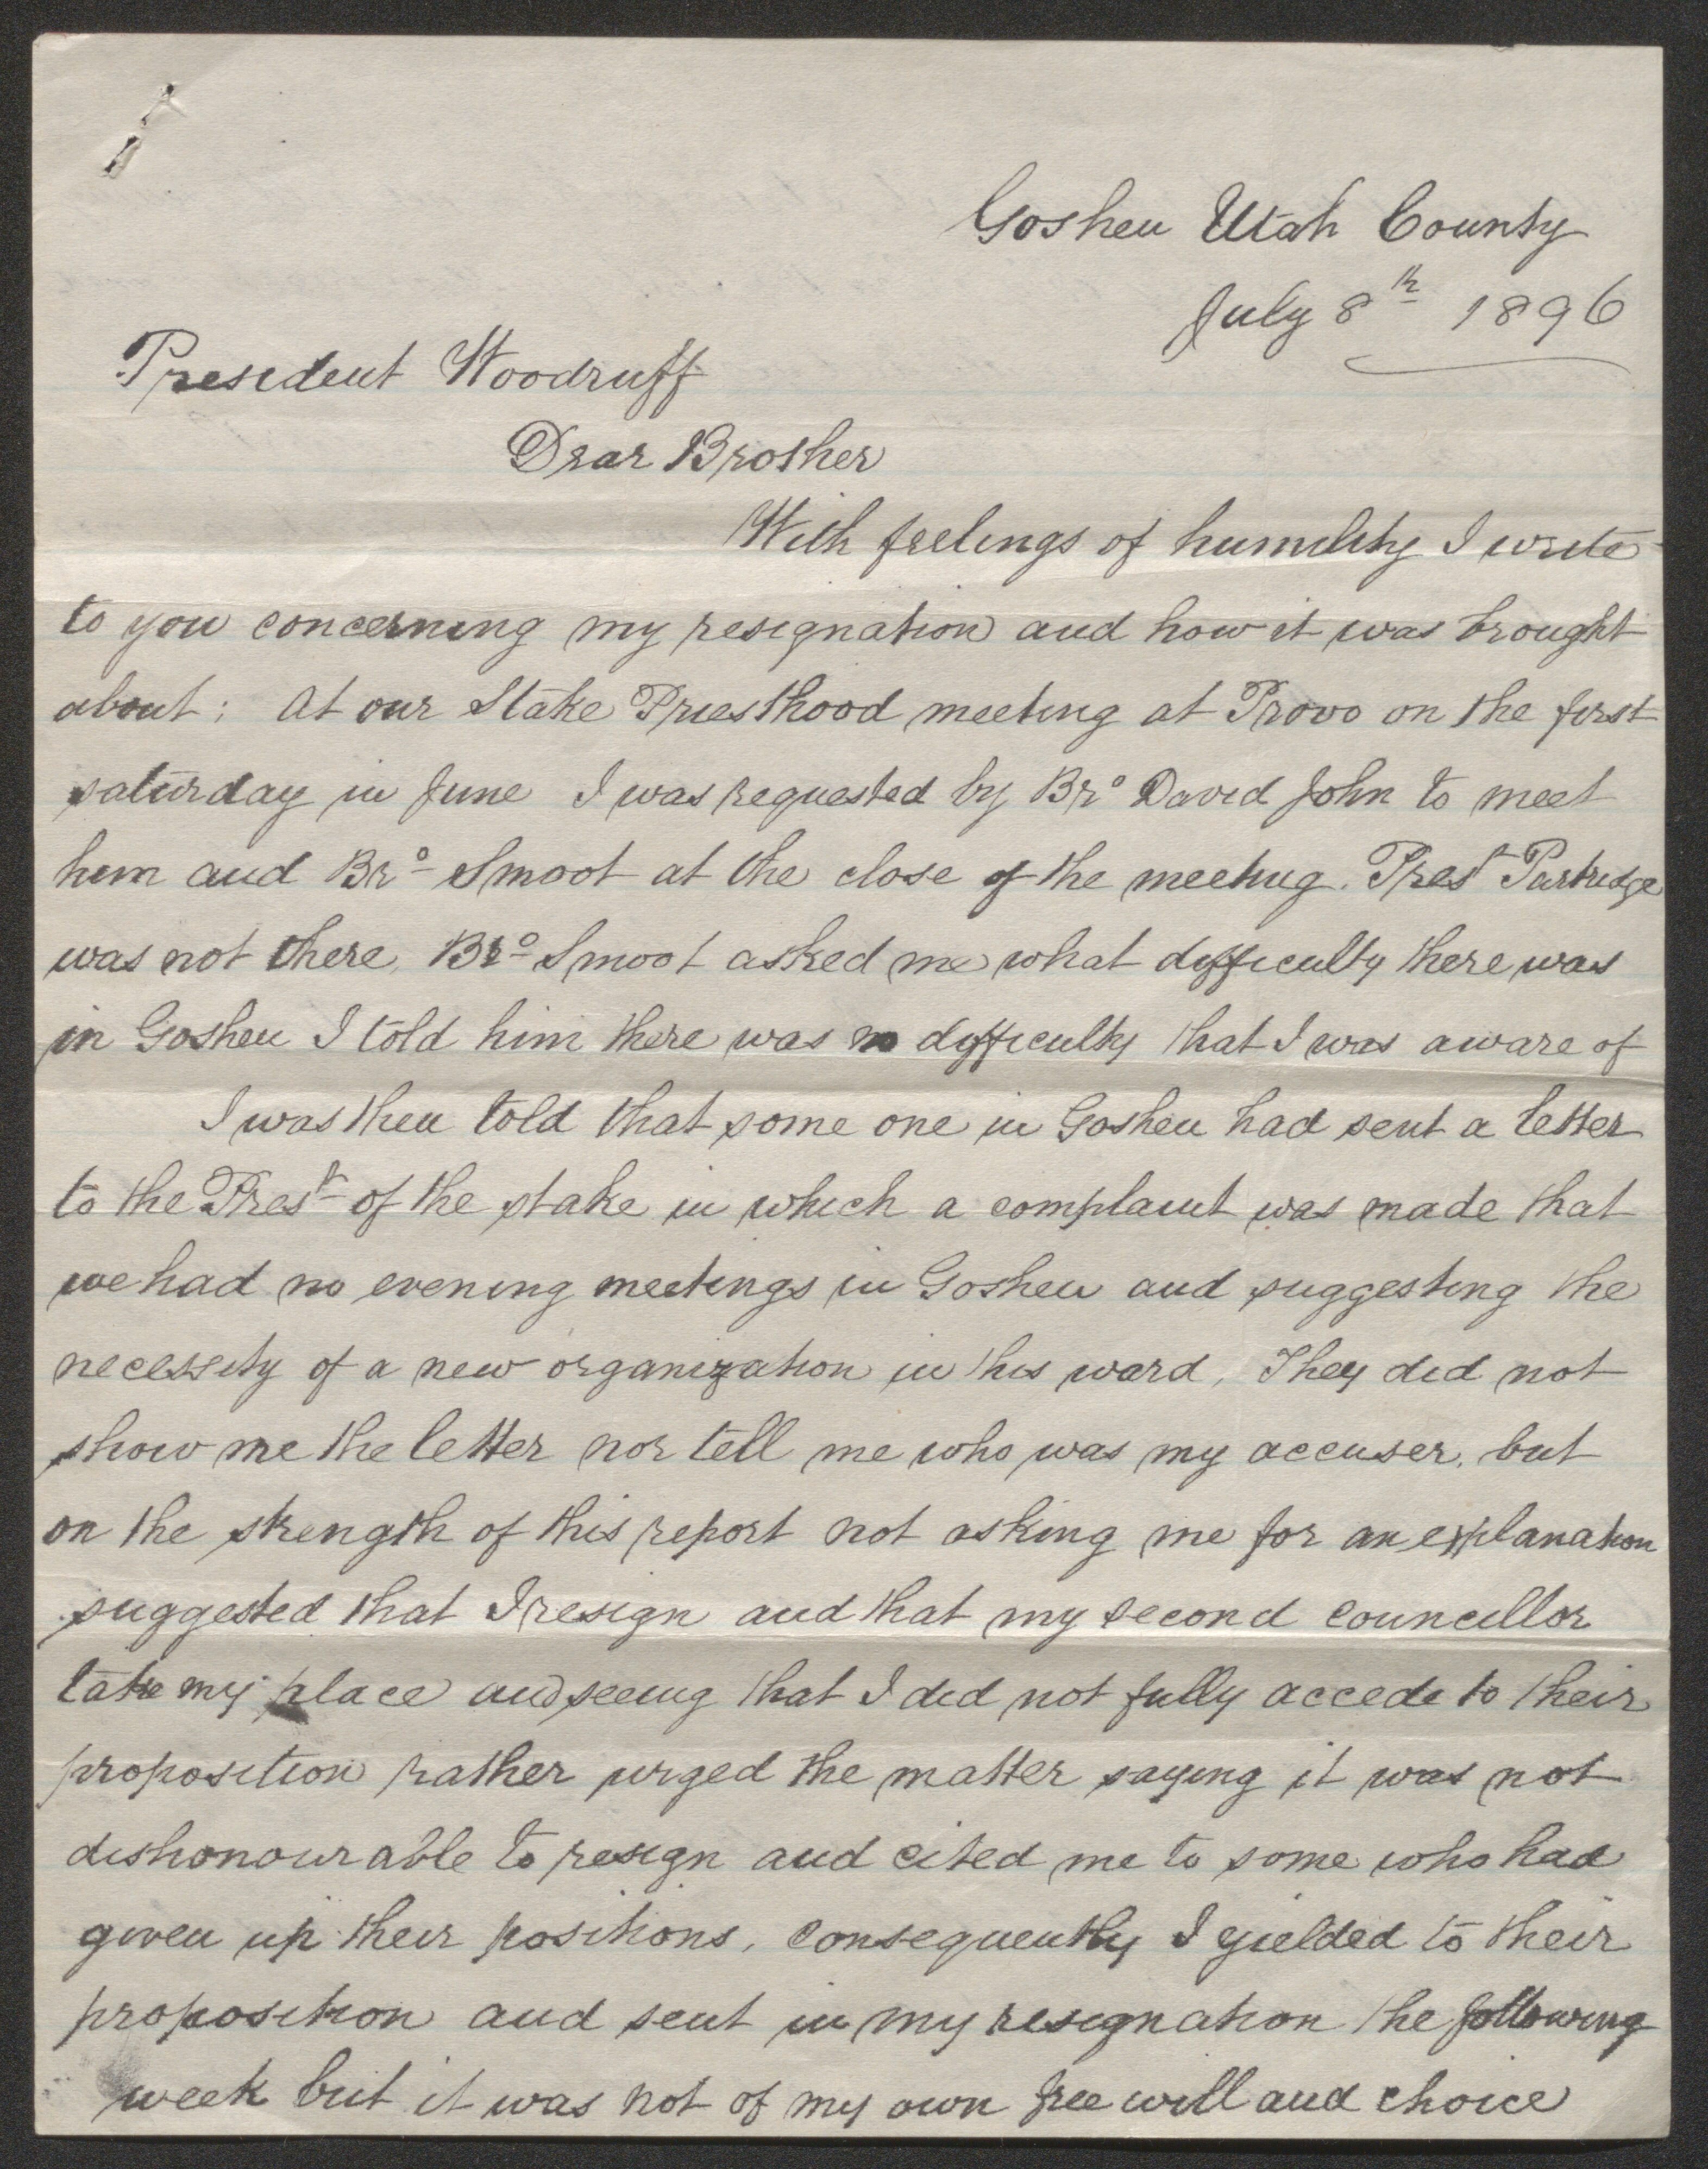 Goshen Utah County
July 8th 1896
President Woodruff
Dear Brother
With feelings of humility I write
to you concerning my resignation and how it was brought
about; at our Stake Priesthood meeting at Provo on the first
saturday in June I was requested by Bro David John to meet
him and Bro Smoot at the close of the meeting. Prest Partridge
was not there, Bro Smoot asked me what difficulty there was
in Goshen I told him there was no difficulty that I was aware of
I was then told that some one in Goshen had sent a letter
to the Prest of the stake in which a complaint was made that
we had no evening meetings in Goshen and suggesting the
necessity of a new organization in this ward, They did not
show me the letter nor tell me who was my accuser, but
on the strength of this report not asking me for an explanation
suggested that I resign and that my second councillor
take my place and seeing that I did not fully accede to their
proposition rather urged the matter saying it was not
dishonourable to resign and cited me to some who had
given up their positions, consequently I yielded to their
proposition and sent in my resignation the following
week but it was not of my own free will and choice